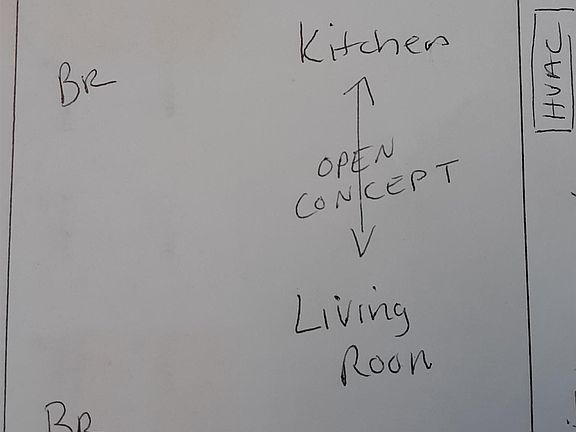 Kitchen
BR
HVAC
OPEN
CONCEPT
Living
Room
BR